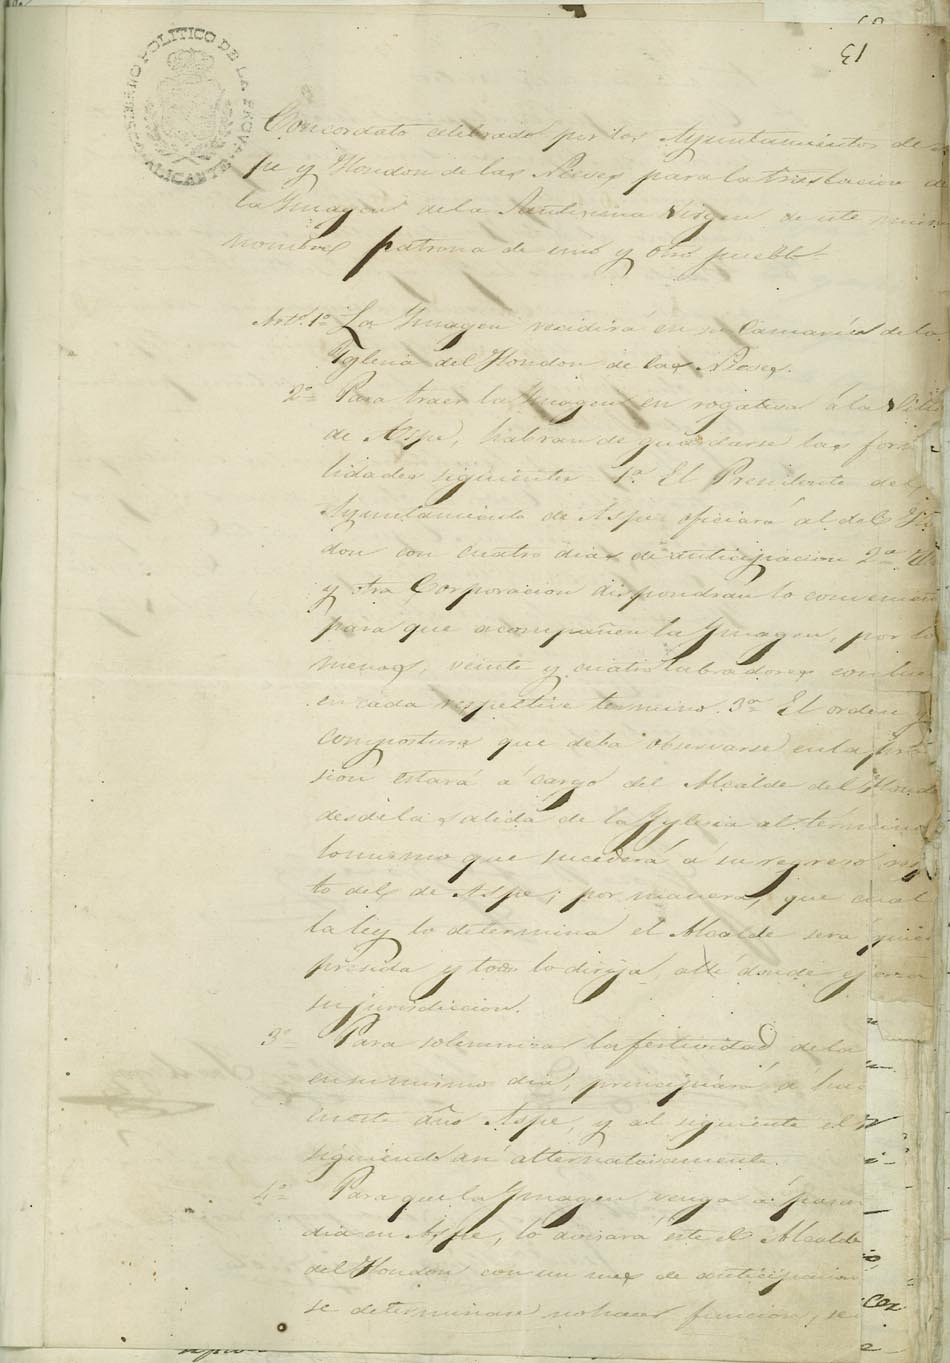 13
GOBIERNO POLITICO DE LA PROVA. ALICANTE
Concordato celebrado por los Ayuntamientos de
pe y Hondon de las Nieves para la traslacion de
la Ymagen de la Santisima Virgen de este mismo
nombre, patrona de uno y otro pueblo.
Artº. 1º La Ymagen recidirá en su Camarin de la
Yglesia del Hondon de las Nieves.
2º Para traer la Ymagen en rogativa á la Villa
de Aspe, habran de guardarse las for
lidades siguientes 1ª El Presidente del
Ayuntamiento de Aspe oficiará al del
don con cuatro dias de anticipacion 2ª
y otra Corporacion dispondran lo
para que acompañen la Ymagen, por lo
menos, veinte y cuatro labradores con
en cada respective termino. 3ª El orden
compostura que deba observarse en la
sion estará á cargo del Alcalde del
desde la salida de la Yglesia al termino
lo mismo que sucederá á su regreso
to del de Aspe; por manera, que cual
la ley lo determina el Alcalde será quien
presida y todo lo dirija, allí donde ejerza
su jurisdiccion.
3º Para solemnizar la festividad de la
en su mismo dia, principiará á
en este año Aspe, y al siguiente el
siguiendo asi alternativamente.
4º Para que la Ymagen venga á
dia en Aspe, lo avisará este al Alcalde
del Hondon con un mes de anticipacion
se determinase no hacer funcion, se